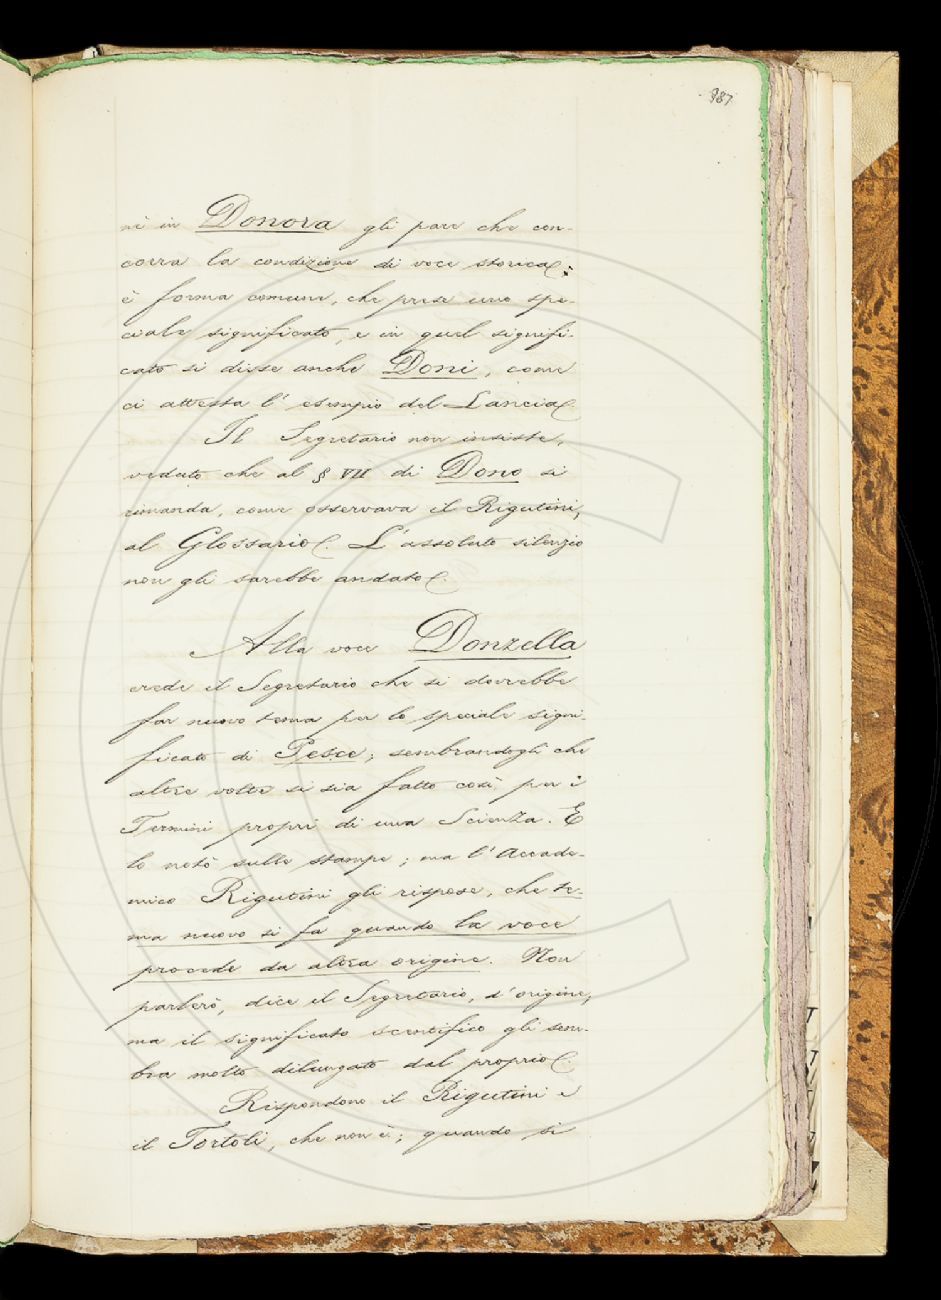 987
nè in Donora gli pare che con-
corra la condizione di voce storica;
è forma comune, che prese uno spe-
ciale significato, e in quel signifi-
cato si disse anche Doni, come
ci attesta l'esempio del Lancia.
Il Segretario non insiste,
veduto che al § VII di Dono si
rimanda, come osservava il Rigutini,
al Glossario. L'assoluto silenzio
non gli sarebbe andato.
Alla voce Donzella
crede il Segretario che si dovrebbe
far nuovo tema per lo speciale signi-
ficato di Pesce; sembrandogli che
altre volte si sia fatto così per i
Termini propri di una Scienza. E
lo notò sulle stampe; ma l'Accade-
mico Rigutini gli rispose, che te-
ma nuovo si fa quando la voce
procede da altra origine. Non
parlerò, dice il Segretario, d'origine,
ma il significato scientifico gli sem-
bra molto dilungato dal proprio.
Rispondono il Rigutini e
il Tortoli, che non è; quando si